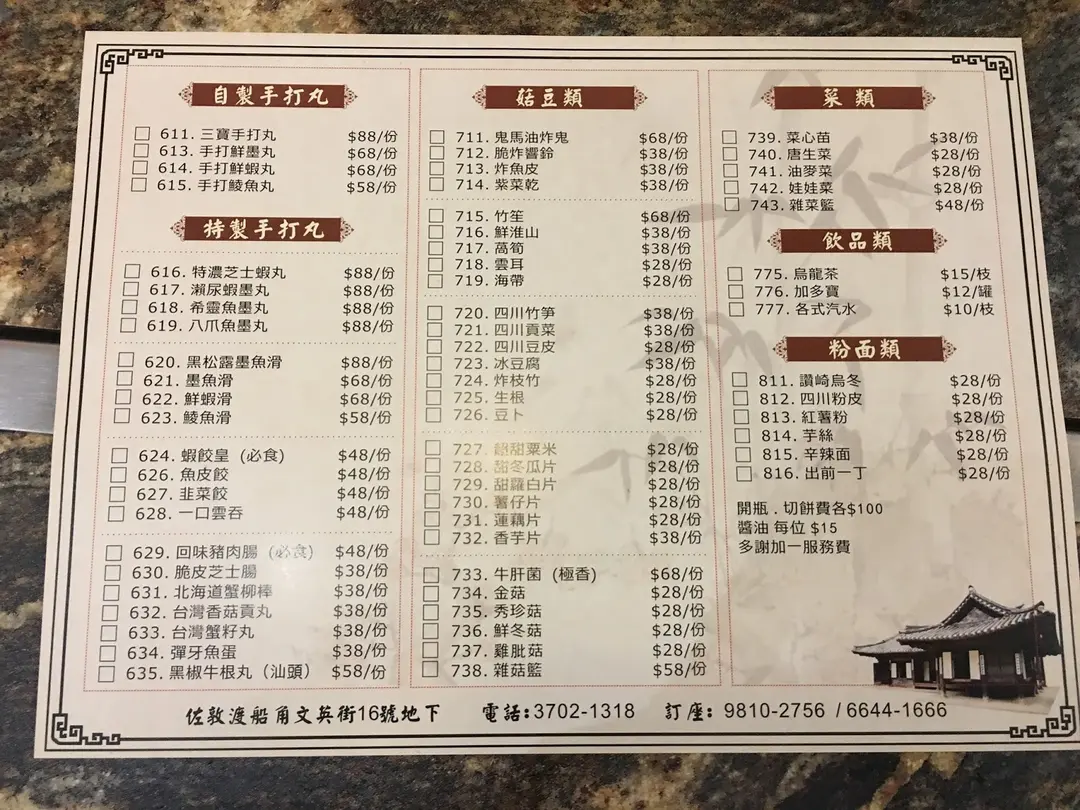 自製手打丸
611. 三寶手打丸 $88/份
613. 手打鮮墨丸 $68/份
614. 手打鮮蝦丸 $68/份
615. 手打鯪魚丸 $58/份
特製手打丸
616. 特濃芝士蝦丸 $88/份
617. 瀨尿蝦墨丸 $88/份
618. 希靈魚墨丸 $88/份
619. 八爪魚墨丸 $88/份
620. 黑松露墨魚滑 $88/份
621. 墨魚滑 $68/份
622. 鮮蝦滑 $68/份
623. 鯪魚滑 $58/份
624. 蝦餃皇 (必食) $48/份
626. 魚皮餃 $48/份
627. 韭菜餃 $48/份
628. 一口雲吞 $48/份
629. 回味豬肉腸 (必食) $48/份
630. 脆皮芝士腸 $38/份
631. 北海道蟹柳棒 $38/份
632. 台灣香菇貢丸 $38/份
633. 台灣蟹籽丸 $38/份
634. 彈牙魚蛋 $38/份
635. 黑椒牛根丸（汕頭） $58/份
菇豆類
711. 鬼馬油炸鬼 $68/份
712. 脆炸響鈴 $38/份
713. 炸魚皮 $38/份
714. 紫菜乾 $38/份
715. 竹笙 $68/份
716. 鮮淮山 $38/份
717. 萵筍 $38/份
718. 雲耳 $28/份
719. 海帶 $28/份
720. 四川竹笋 $38/份
721. 四川貢菜 $38/份
722. 四川豆皮 $28/份
723. 冰豆腐 $38/份
724. 炸枝竹 $28/份
725. 生根 $28/份
726. 豆卜 $28/份
727. 甜粟米 $28/份
728. 甜冬瓜片 $28/份
729. 甜蘿白片 $28/份
730. 薯仔片 $28/份
731. 蓮藕片 $28/份
732. 香芋片 $38/份
733. 牛肝菌 (極香) $68/份
734. 金菇 $28/份
735. 秀珍菇 $28/份
736. 鮮冬菇 $28/份
737. 雞肶菇 $28/份
738. 雜菇籃 $58/份
菜類
739. 菜心苗 $38/份
740. 唐生菜 $28/份
741. 油麥菜 $28/份
742. 娃娃菜 $28/份
743. 雜菜籃 $48/份
飲品類
775. 烏龍茶 $15/枝
776. 加多寶 $12/罐
777. 各式汽水 $10/枝
粉面類
811. 讚崎烏冬 $28/份
812. 四川粉皮 $28/份
813. 紅薯粉 $28/份
814. 芋絲 $28/份
815. 辛辣面 $28/份
816. 出前一丁 $28/份
開瓶 . 切餅費各$100
醬油 每位 $15
多謝加一服務費
佐敦渡船角文英街16號地下 電話:3702-1318 訂座: 9810-2756 / 6644-1666